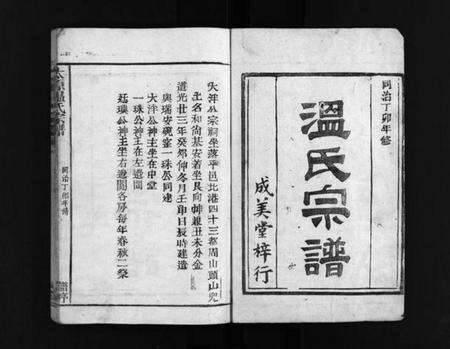 同治丁卯年修
溫氏宗譜
成美堂梓行
大洋公宗祠坐落平邑北港四十三都周山頭山兜
土名和尚基安着坐艮向坤兼丑未分金
道光廿三年癸卯仲冬月壬申日辰時建造
與瑞安硯窟一珠公同建
大洋公神主坐在中堂
一珠公神主在左邊閣
廷璵公神主坐右邊閣各房每年春秋二祭
同治丁卯年修
譜序